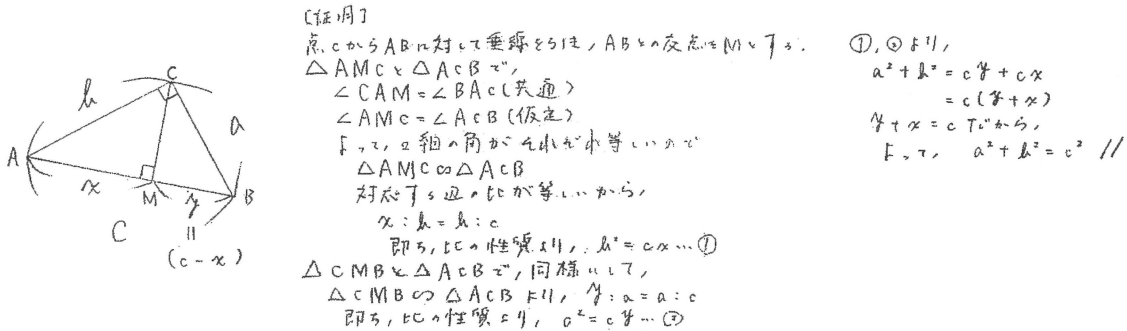 [証明]
点CからABに対して垂線をひき,ABとの交点をMとする.
△AMCと△ACBで,
∠CAM=∠BAC(共通)
∠AMC=∠ACB(仮定)
よって,2組の角がそれぞれ等しいので
△AMC∽△ACB
対応する辺の比が等しいから,
x:b=b:c
即ち,比の性質より,b²=cx…①
△CMBと△ACBで,同様にして,
△CMB∽△ACBより,y:a=a:c
即ち,比の性質より,a²=cy…②
①,②より,
a²+b²=cy+cx
=c(y+x)
y+x=cだから,
よって,a²+b²=c² //
C
b
a
A
x
M
y
B
C
||
(c-x)